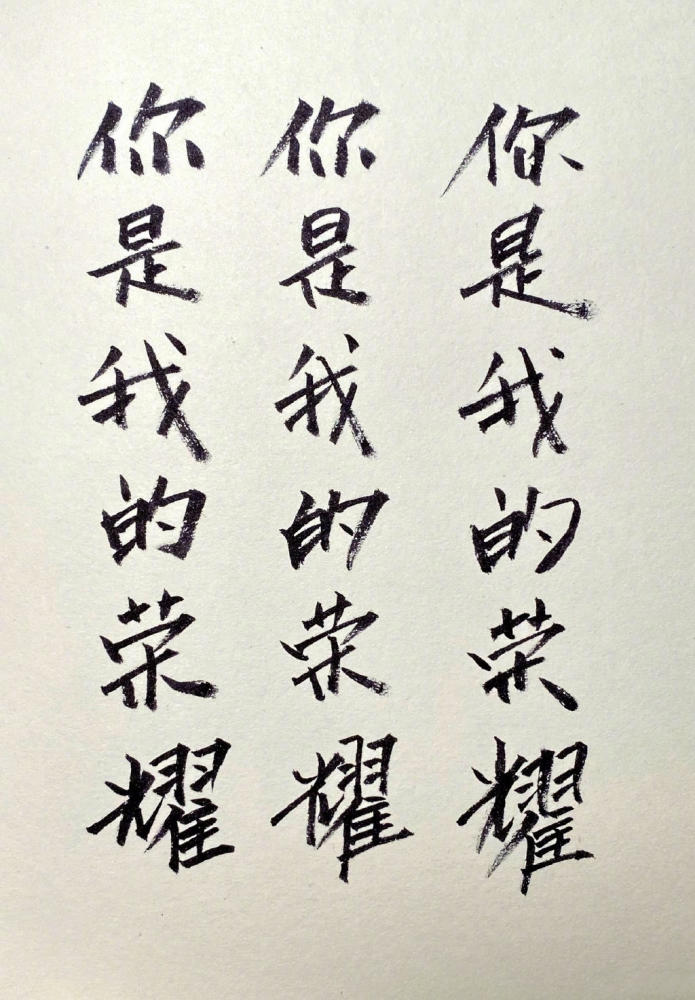 你是我的荣耀
你是我的荣耀
你是我的荣耀